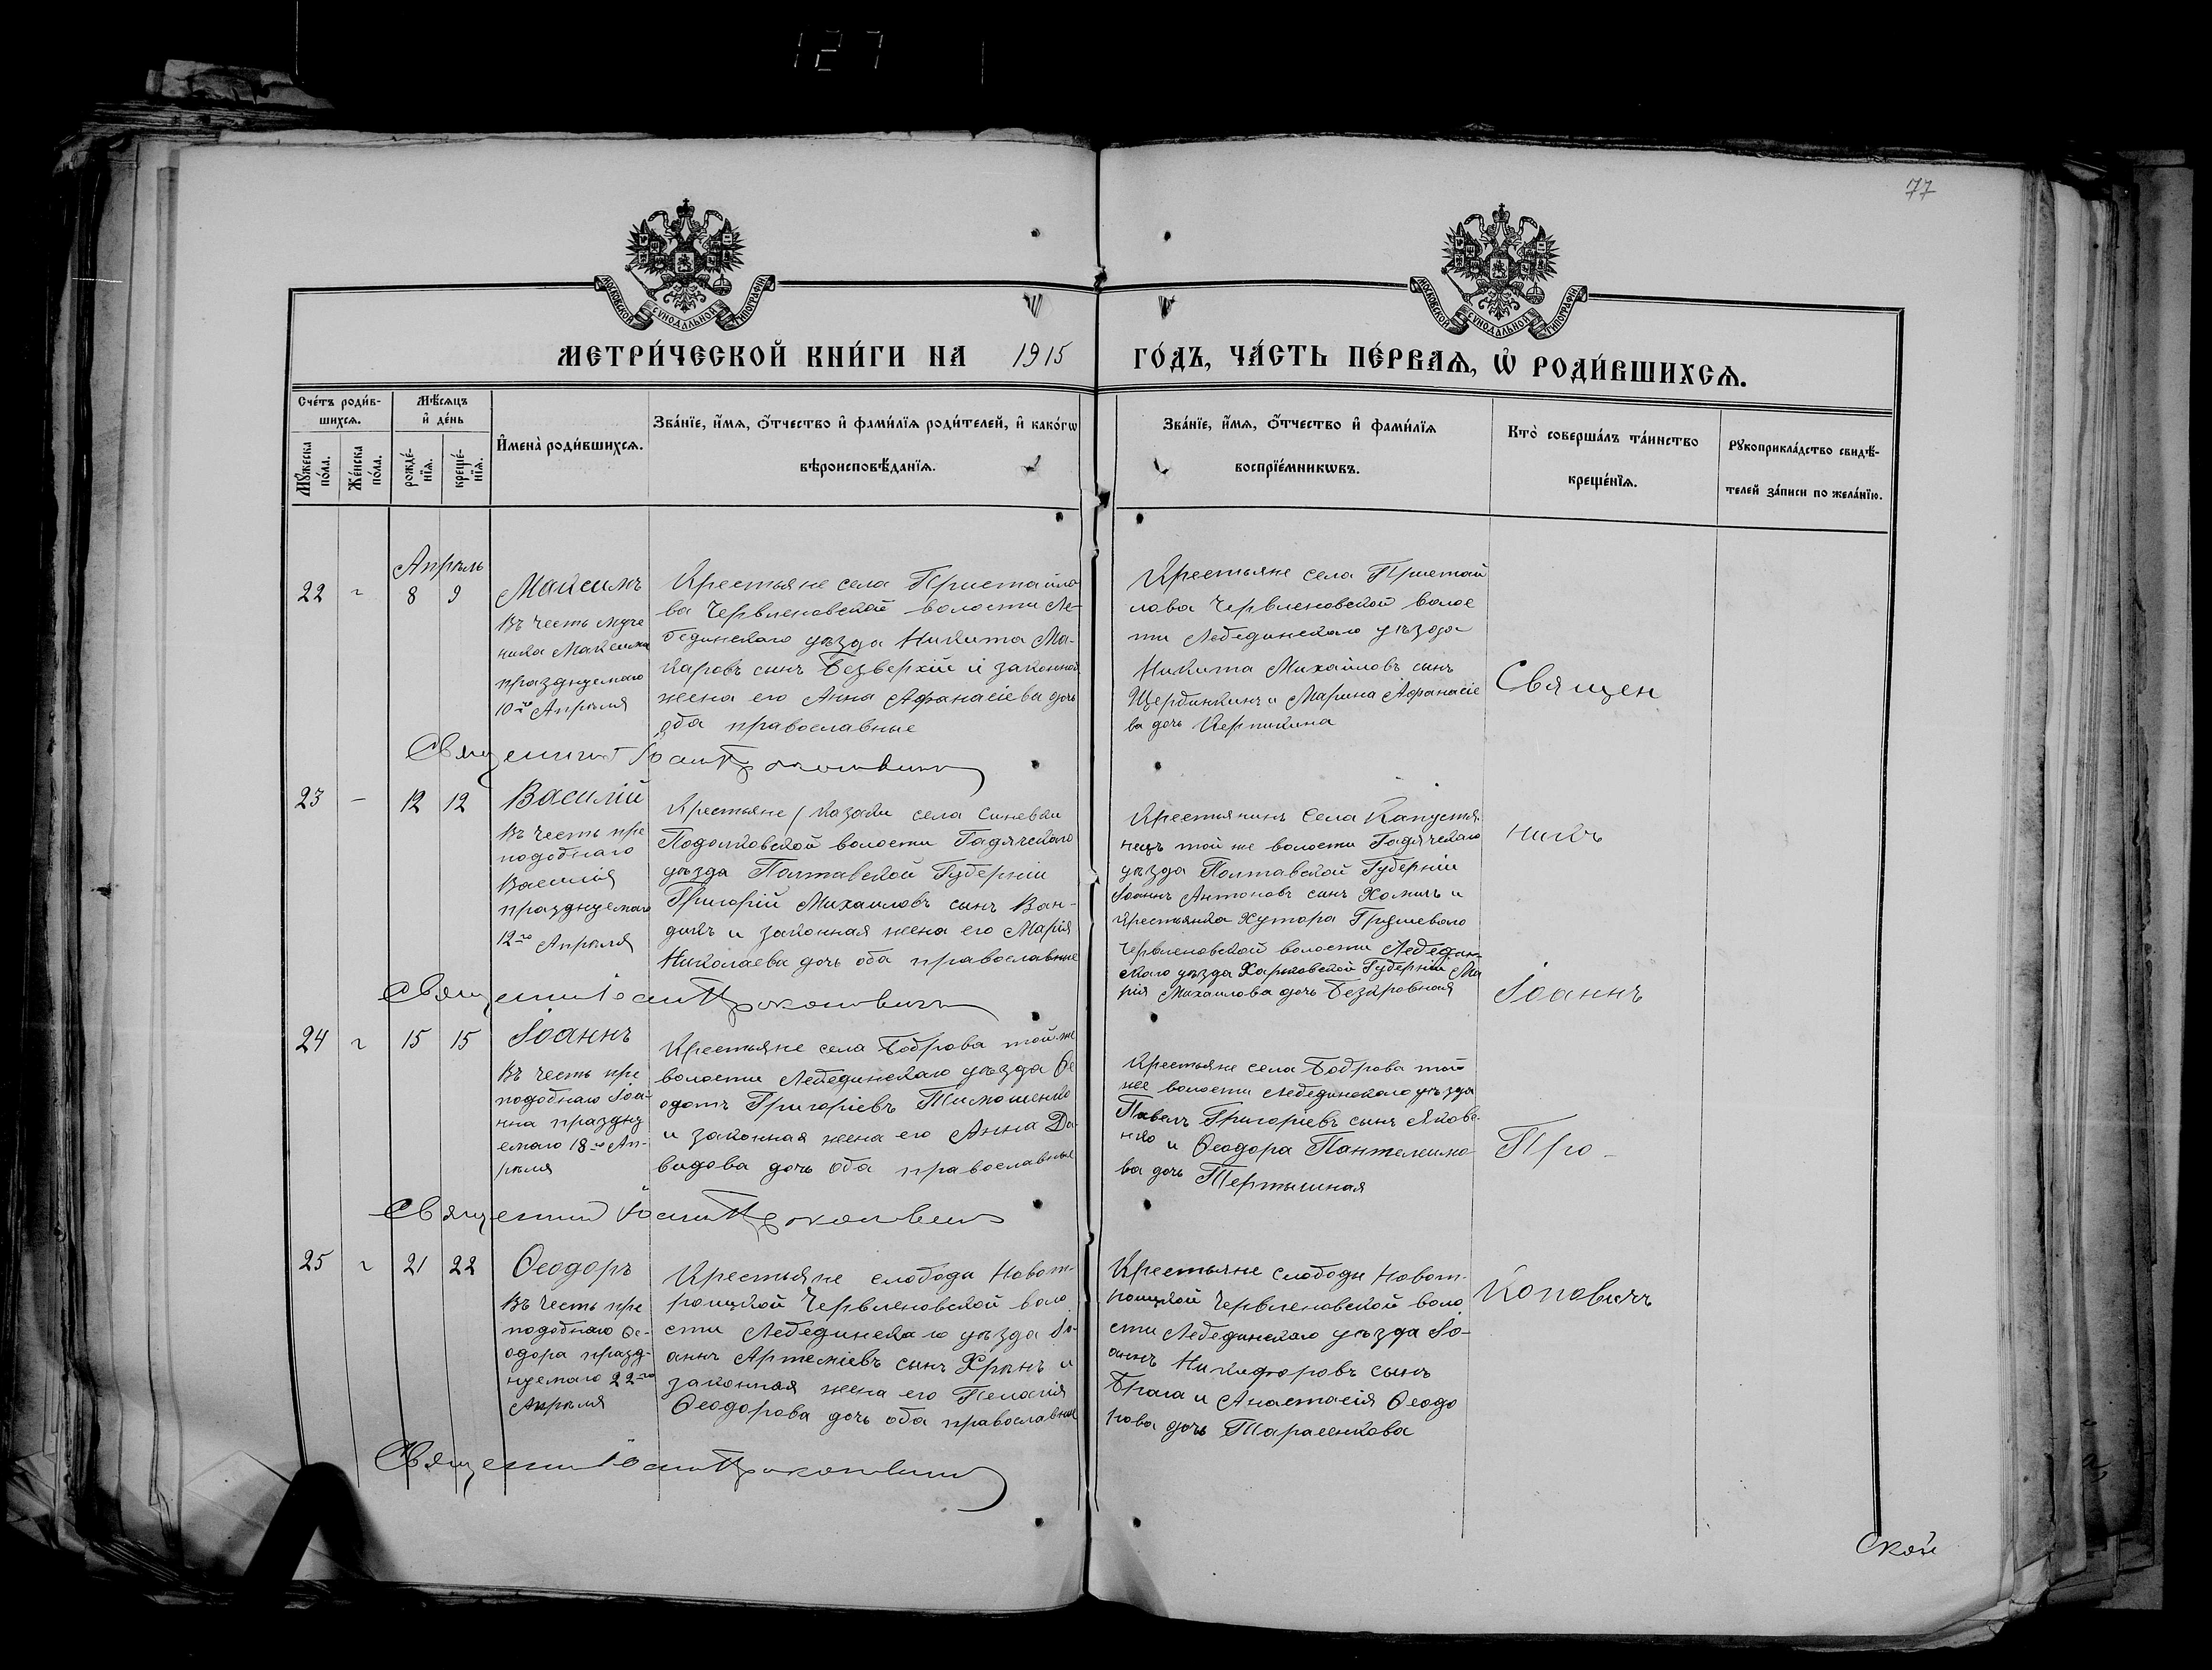 127
77
МОСКОВСКОЙ СѴНОДАЛЬНОЙ ТИПОГРАФІИ
МОСКОВСКОЙ СѴНОДАЛЬНОЙ ТИПОГРАФІИ
МЕТРИ́ЧЕСКОЙ КНИ́ГИ НА 1915 ГО́ДЪ, ЧА́СТЬ ПЕ́РВАѦ, Ѡ҆ РОДИ́ВШИХСѦ.
Сче́тъ роди́в-
шихсѧ.
Мѣ́сѧцъ
и҆ де́нь
Мꙋ́жеска
по́ла.
Же́нска
по́ла.
рожде́-
нїѧ.
креще́-
нїѧ.
И҆мена̀ роди́вшихсѧ.
Зва́нїе, и҆́мѧ, о҆́тчество и҆ фами́лїѧ роди́телей, и҆ како́гѡ
вѣроисповѣ́данїѧ.
Зва́нїе, и҆́мѧ, о҆́тчество и҆ фами́лїѧ
воспрїе́мникѡвъ.
Кто̀ соверша́лъ та́инство
креще́нїѧ.
Рꙋкоприкла́дство свидѣ́-
телей за́писи по жела́нїю.
Апрѣль
22
8 9
Максимъ
Въ честь муче
ника Максима
празднуемаго
10го Апрѣля
Крестьяне села Пристайло
ва Червленовской волости Ле-
бединскаго уѣзда Никита Ма-
каровъ сынъ Безверхій и законная
жена его Анна Афанасіева дочь
оба православные
Крестьяне села Пристай
лова Червленовской волос
ти Лебединскаго уѣзда
Никита Михайловъ сынъ
Щербинкинъ и Марина Афанасіе
ва дочь
Священ
Священникъ Іоаннъ Прокоповичъ
23 — 12 12
Василій
Въ честь пре
подобнаго
Василія
празднуемаго
12го Апрѣля
Крестьяне / казаки села Синевки
Подолковской волости Гадячскаго
уѣзда Полтавской Губерніи
Григорій Михаиловъ сынъ Ван-
дикъ и законная жена его Марія
Николаева дочь оба православные
Крестьянинъ села Капустя
нецъ той же волости Гадячскаго
уѣзда Полтавской Губерніи
Іоаннъ Антоновъ сынъ и
крестьянка Хутора
Червленовской волости Лебедин-
скаго уѣзда Харьковской Губерніи Ма
рія Михаилова дочь
никъ
Іоаннъ
Священник Іоаннъ Прокоповичъ
24
15 15
Іоаннъ
Въ честь пре
подобнаго Іоа-
нна праздну
емаго 18го Ап-
рѣля
Крестьяне села Боброва той же
волости Лебединскаго уѣзда Ѳе
одотъ Григоріевъ Тимошенко
и законная жена его Анна Да-
видова дочь оба православные
Крестьяне села Боброва той
же волости Лебединскаго уѣзда
Павелъ Григоріевъ сынъ Якове-
нко и Ѳеодора Пантелеимо
ва дочь Пертышная
Про-
Священник Іоаннъ Прокоповичъ
25
21 22
Ѳеодоръ
Въ честь пре
подобнаго Ѳе-
одора празд-
нуемаго 22го
Апрѣля
Крестьяне слободы Новот-
роицкой Червленовской воло
сти Лебединскаго уѣзда Іо-
аннъ Артеміевъ сынъ Хрѣнъ и
законная жена его Пелагія
Ѳеодорова дочь оба православные
Крестьяне слободы Новот-
роицкой Червленовской воло
сти Лебединскаго уѣзда Іо-
аннъ Никифоровъ сынъ
Брага и Анастасія Ѳеодо
рова дочь Тарасенкова
коповичъ
Священник Іоаннъ Прокоповичъ
Ской